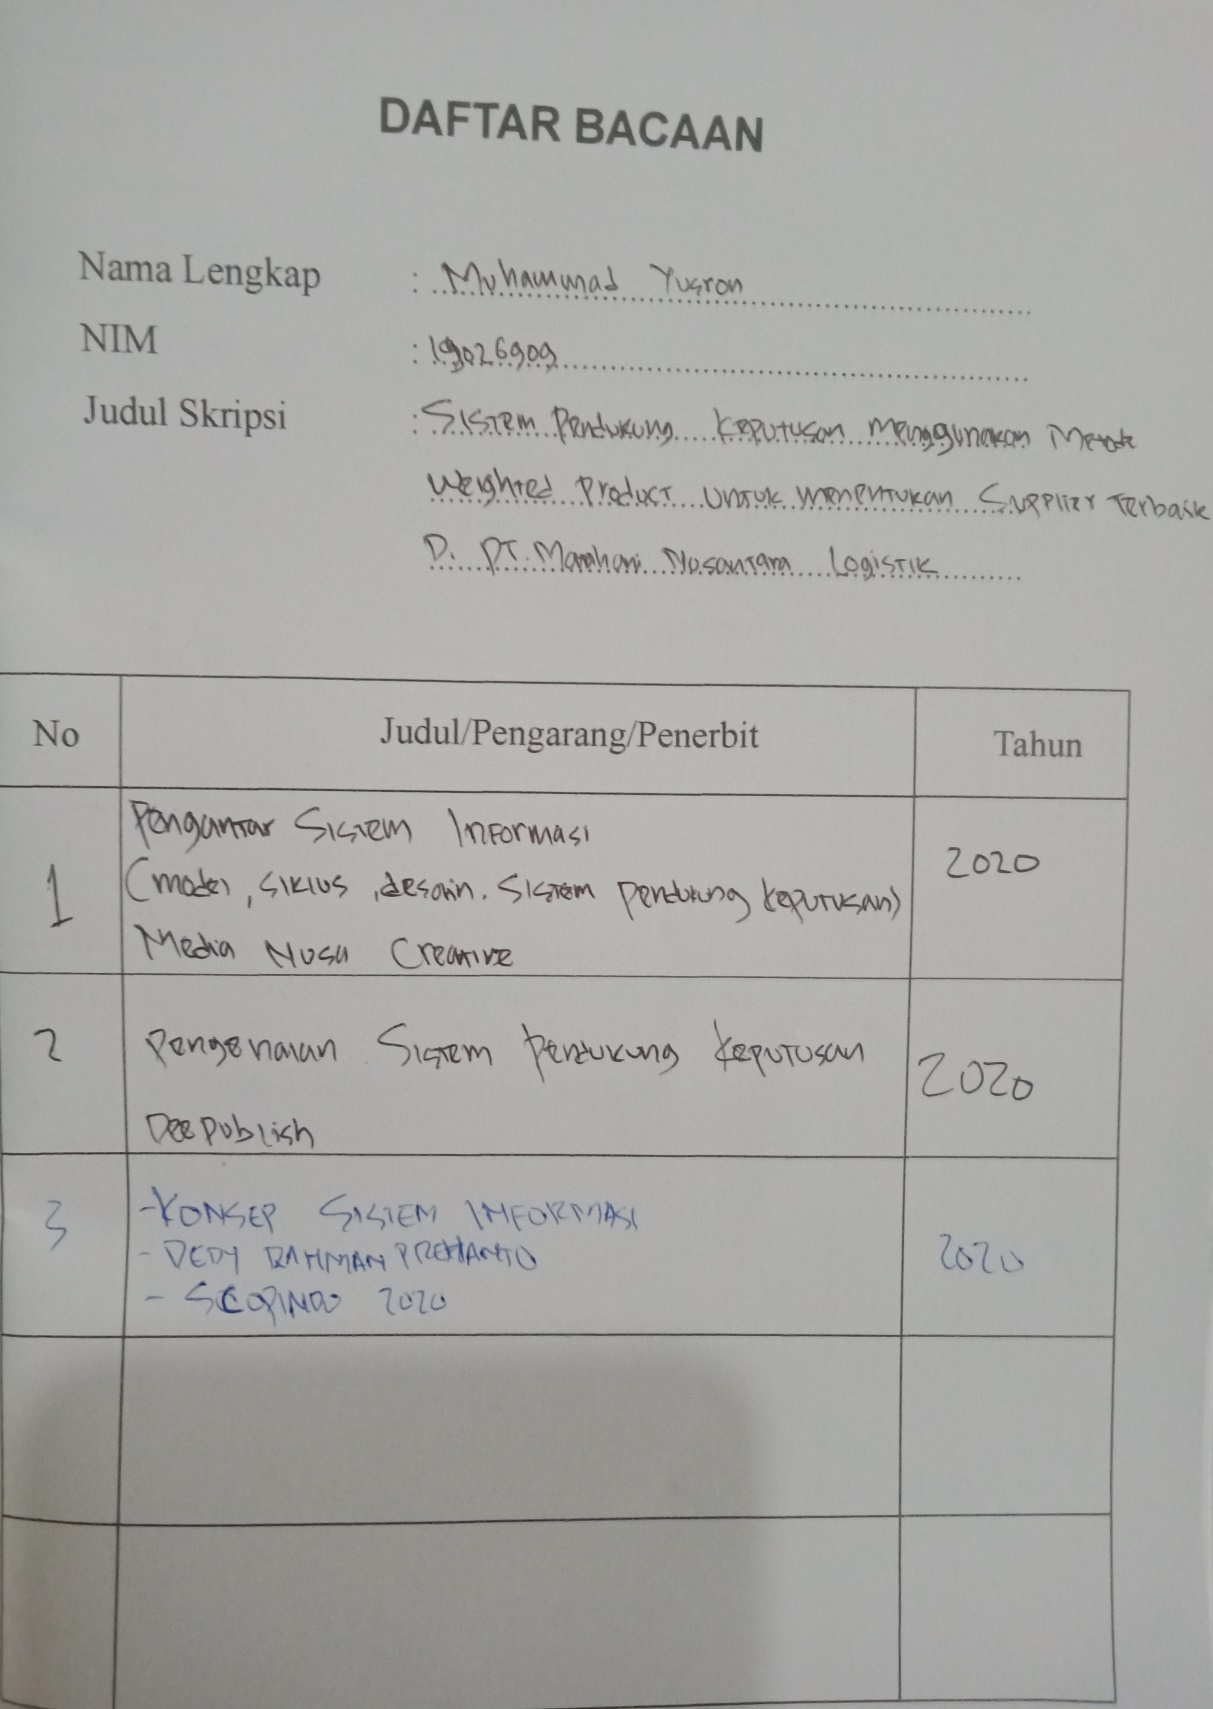 DAFTAR BACAAN
Nama Lengkap : Muhammad Yusron
NIM : 19026909
Judul Skripsi : Sistem Pendukung Keputusan menggunakan Metode
Weighted Product untuk menentukan Supplier Terbaik
Di PT. Nusantara Logistik
No Judul/Pengarang/Penerbit Tahun
Pengantar Sistem Informasi
1 (model, siklus, desain. Sistem pendukung keputusan) 2020
Media Nusa Creative
2 Pengenalan Sistem Pendukung Keputusan 2020
Deepublish
3 - KONSEP SISTEM INFORMASI
- DEDY RAHMAN PREHANTO 2020
- SCOPINDO 2020